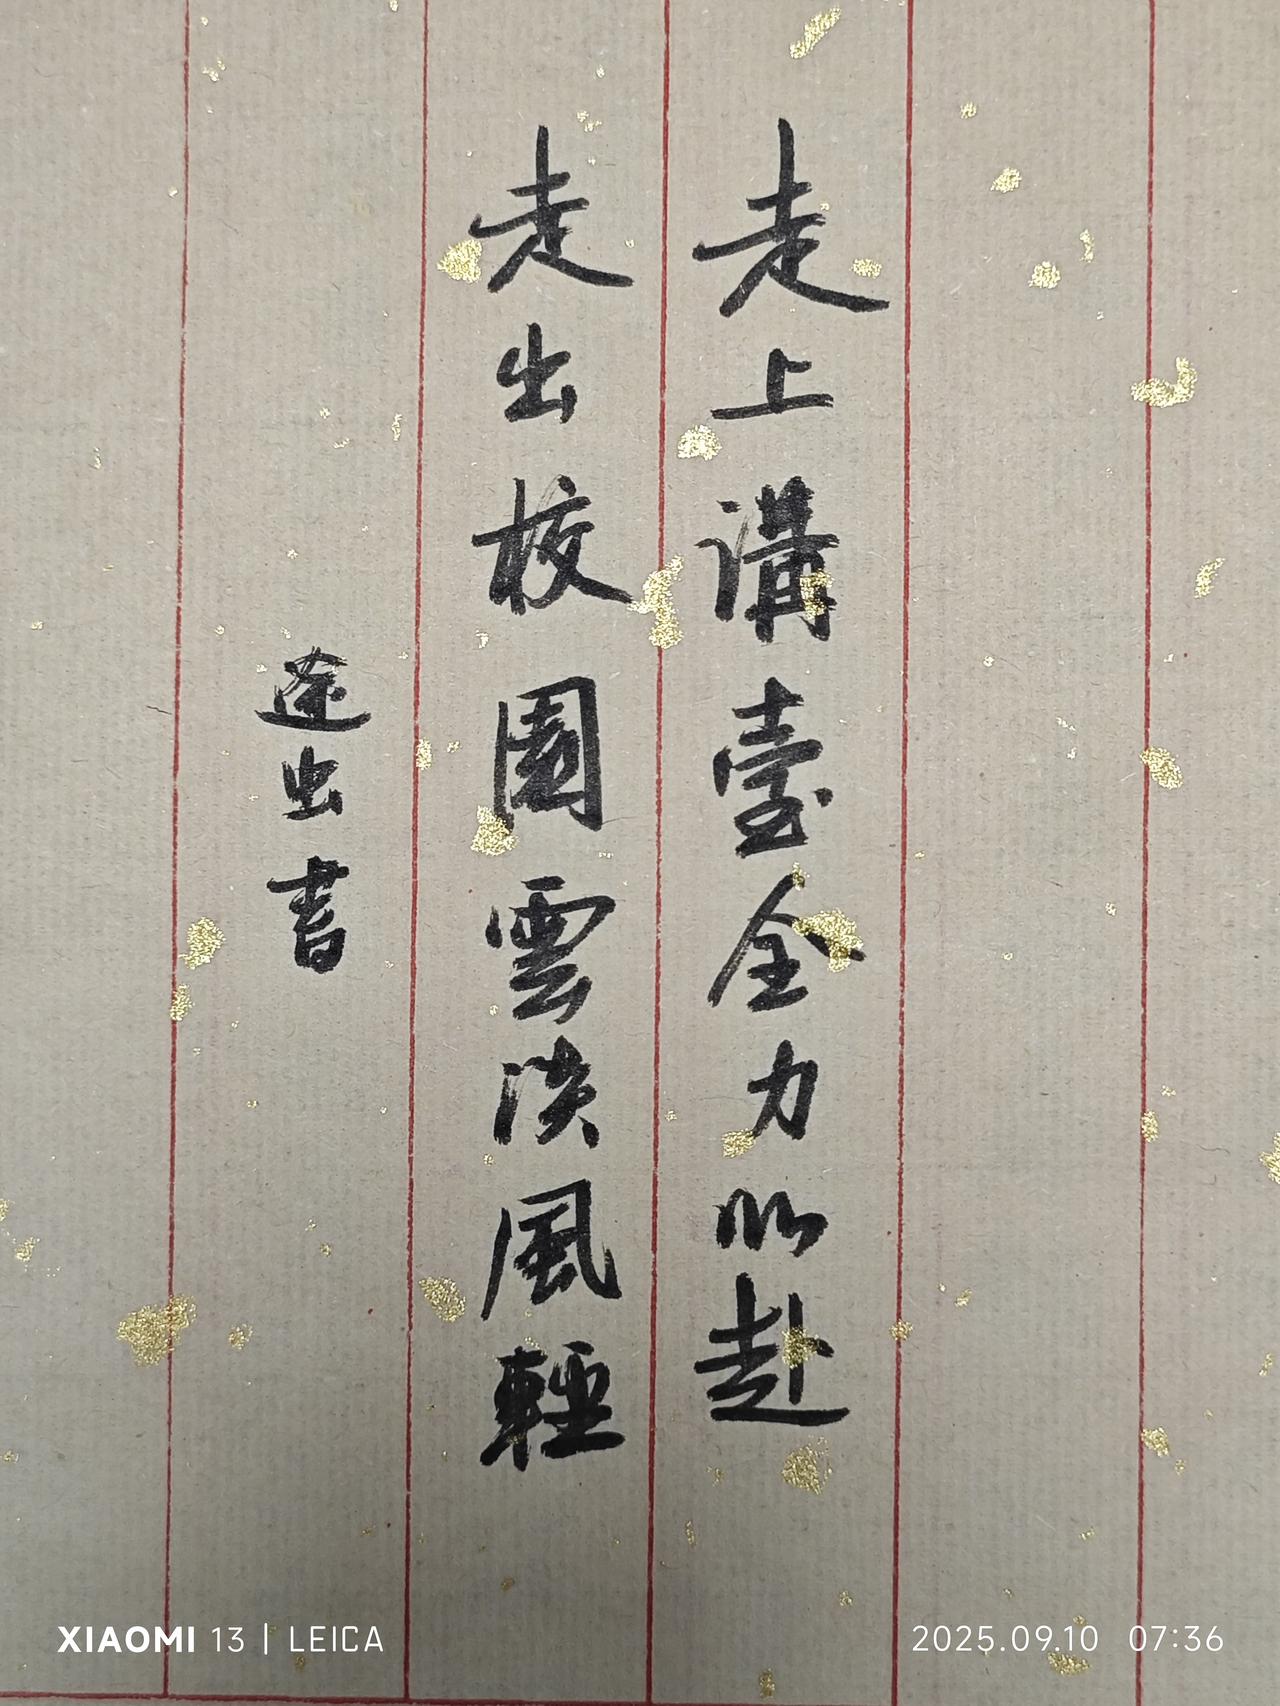 走上講臺全力以赴
走出校園雲淡風輕
途虫書
XIAOMI 13 | LEICA
2025.09.10 07:36